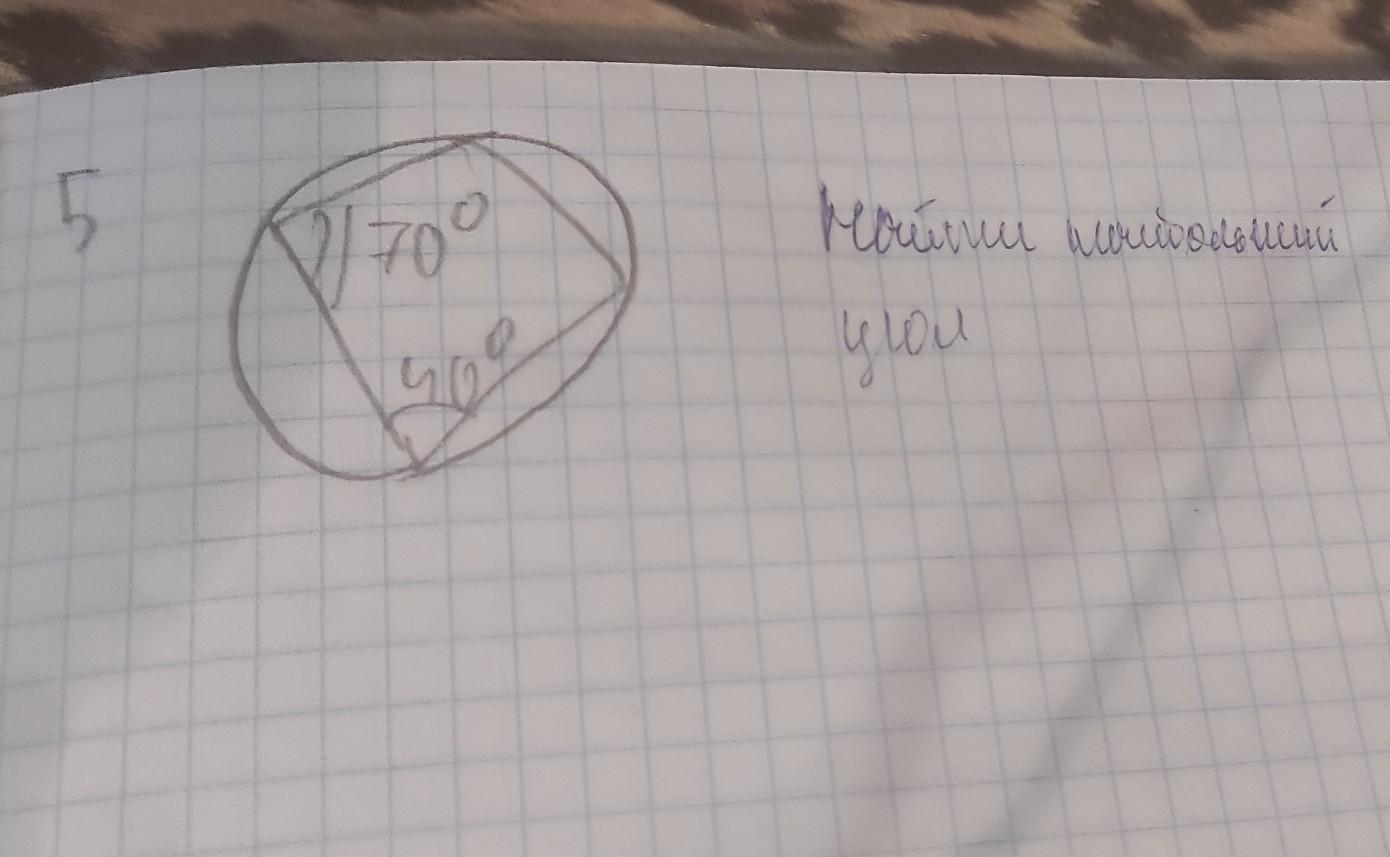 5
70°
40°
Найти наибольший
угол